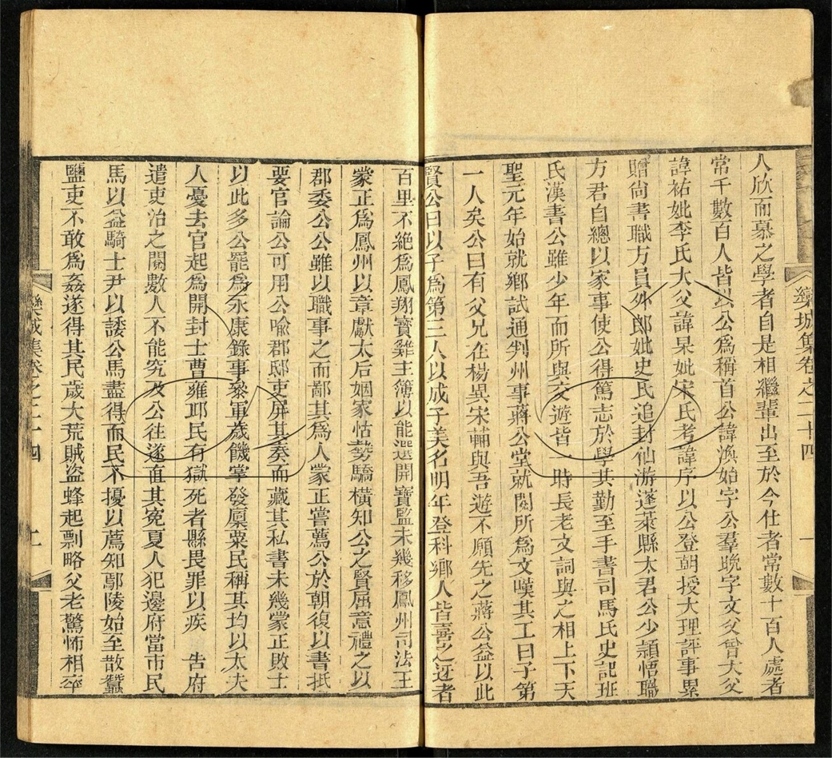 人欣而慕之學者自是相繼輩出至於今仕者常數十百人處者
常千數百人皆以公爲稱首公諱渙始字公羣晚字文父曾大父
諱祜妣李氏大父諱杲妣宋氏考諱序以公登朝授大理評事累
贈尚書職方員外郎妣史氏追封仙游蓬萊縣太君公少穎悟職
方君自總以家事使公得篤志於學其勤至手書司馬氏史記班
氏漢書公雖少年而所與交遊皆一時長老文詞與之相上下天
聖元年始就鄉試通判州事蔣公堂就閱所爲文嘆其工曰子第
一人矣公曰有父兄在楊異宋輔與吾遊不願先之蔣公益以此
賢公曰以子爲第三人以成子美名明年登科鄉人皆喜之迓者
百里不絶爲鳳翔寶雞主簿以能選開寶監未幾移鳳州司法王
蒙正爲鳳州以章獻太后姻家怙勢驕橫知公之賢屈意禮之以
郡委公公雖以職事之而鄙其爲人蒙正嘗薦公於朝復以書抵
要官論公可用公喻郡邸吏屏其奏而藏其私書未幾蒙正敗士
以此多公罷爲永康錄事參軍歲饑掌發廩粟民稱其均以太夫
人憂去官起爲開封士曹雍邱民有獄死者縣畏罪以疾告府
遣吏治之閱數人不能究及公往遂直其冤夏人犯邊府當市民
馬以益騎士尹以諉公馬盡得而民不擾以薦知鄢陵始至散蠶
鹽吏不敢爲姦遂得其民歲大荒賊盜蜂起剽略父老驚怖相率
欒城集卷之二十四
欒城集卷之二十四